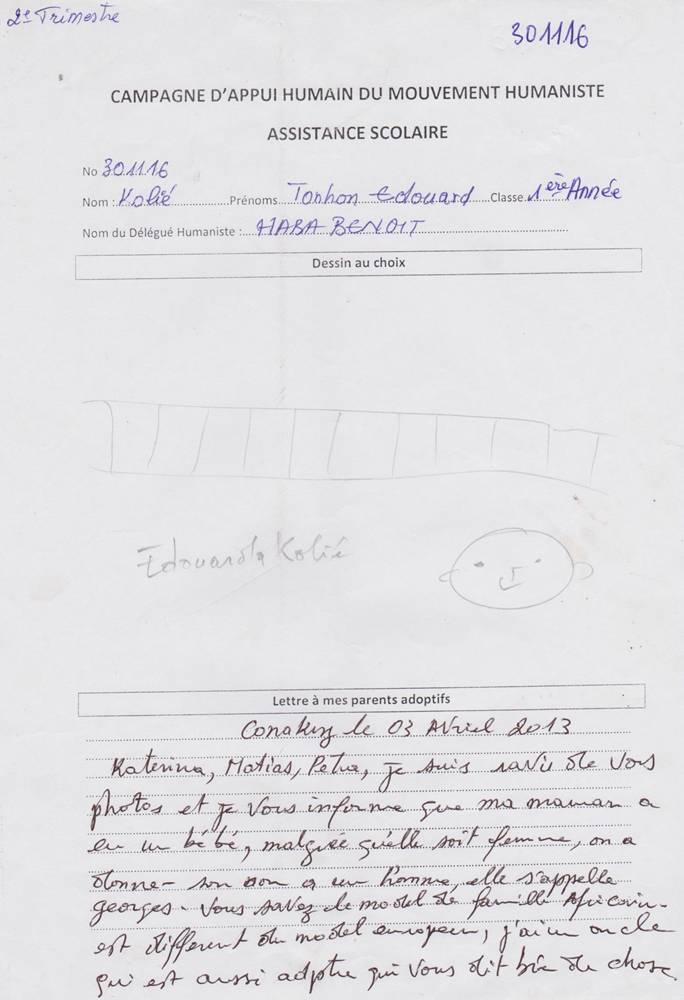 2e Trimestre
301116
CAMPAGNE D'APPUI HUMAIN DU MOUVEMENT HUMANISTE
ASSISTANCE SCOLAIRE
No 301116
Nom : Kolié Prénoms Tonhon Edouard Classe 1ère Année
Nom du Délégué Humaniste : HABA BENOIT
Dessin au choix
Edouard Kolié
Lettre à mes parents adoptifs
Conakry le 03 Avril 2013
Katerina, Matias, Petra, je suis ravie de vos
photos et je vous informe que ma maman a
eu un bébé, malgrée qu'elle soit femme, on a
donne - son nom a un homme, elle s'appelle
georges. Vous savez le model de famille Africain
est different du model europeen, j'ai un oncle
qui est aussi adpte qui vous dit bie de chose